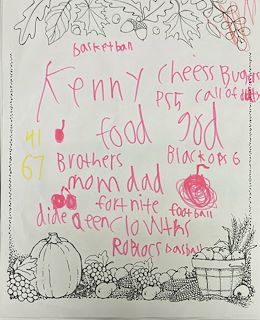 basketball
Kenny Cheess Bugers
PS5 call of duty
41 food god
67 Brothers Black ops 6
mom dad
fortnite football
Roblocs basball